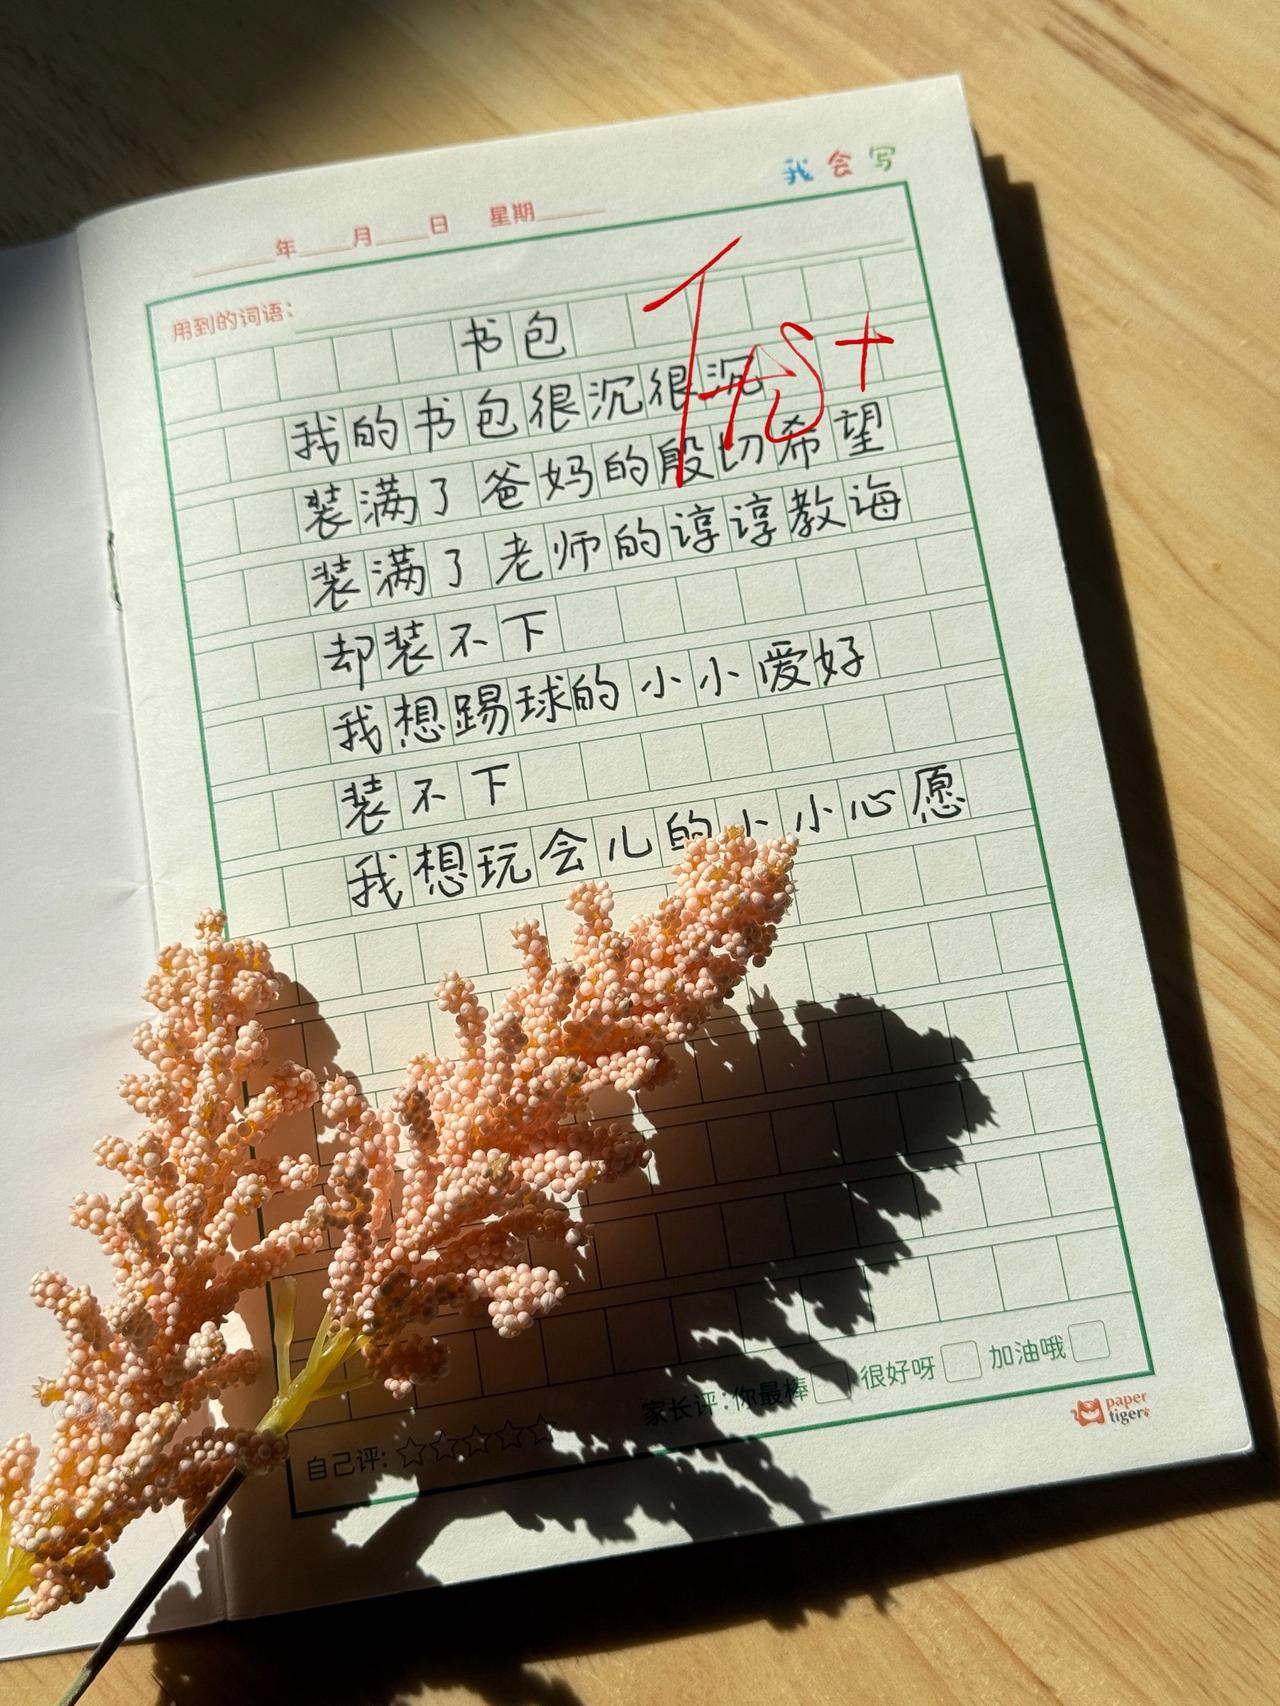 我会写
年 月 日 星期
用到的词语:
书包
我的书包很沉很沉
装满了爸妈的殷切希望
装满了老师的谆谆教诲
却装不下
我想踢球的小小爱好
装不下
我想玩会儿的小小心愿
家长评:你最棒 很好呀 加油哦
自己评:
paper
tiger